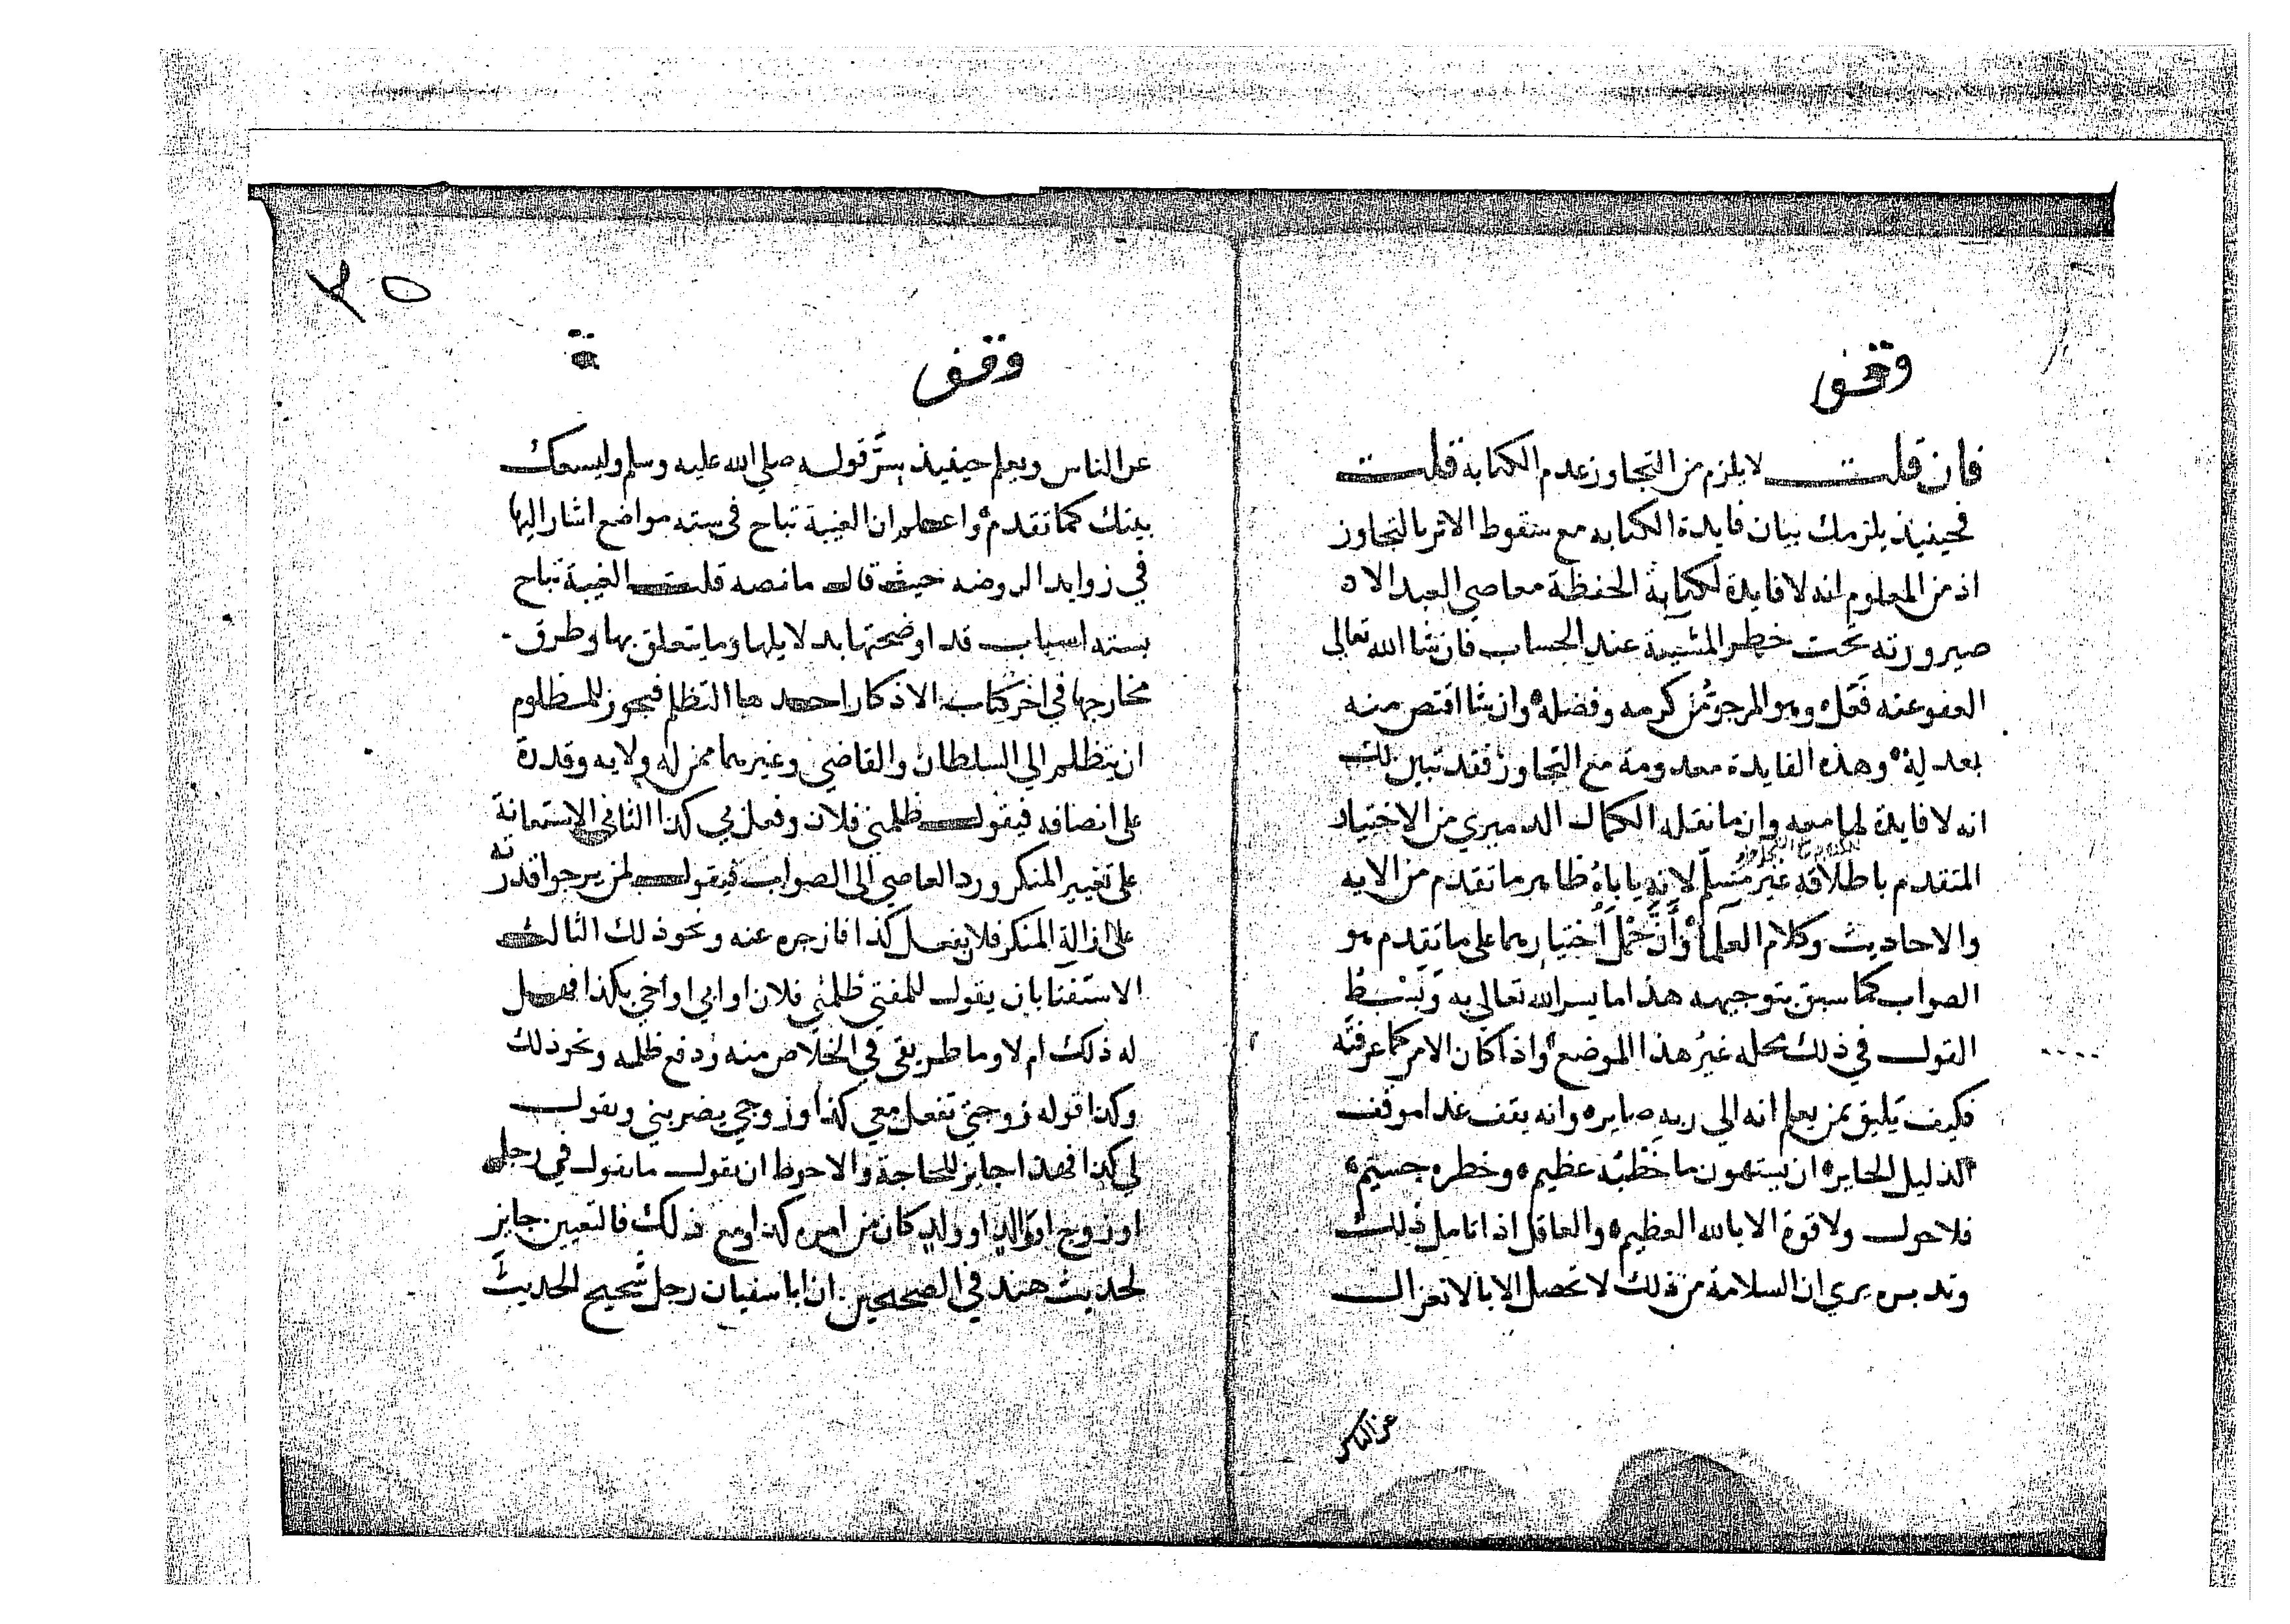 وقف
فان قلت لا يلزم من التجاوز عدم الكتابة قلت
فحينيذ يلزمك بيان فايدة الكتابه مع سقوط الاثر بالتجاوز
اذ من المعلوم انه لا فايدة لكتابة الحفظة معاصي العبد الا
صيرورته تحت خطر المشيئة عند الحساب فان شا الله تعالى
العفو عنه فعل وهو المرجو من كرمه وفضله وان شا اقتص منه
بعدله وهذه الفايدة معدومة مع التجاوز فقد تبين لك
انه لا فايدة لها معه وان ما نقله الكمال الدميري من الاختيار
المتقدم باطلاقه غير مسلم لانه ياباه ظاهر ما تقدم من الايه
والاحاديث وكلام العلما وأن حمل اختيارهما على ما تقدم هو
الصواب كما سبق بتوجيهه هذا ما يسر الله تعالى به وبسط
القول في ذلك محله غير هذا الموضع واذا كان الامر كما عرفته
فكيف يليق بمن يعلم انه الي ربه صايره وانه يقف غدا موقف
الذليل الحايره ان يستهون ما خطبه عظيم وخطره جسيم
فلا حول ولا قوة الا بالله العظيم والعاقل اذا تامل ذلك
وتدبره يري ان السلامة من ذلك لا تحصل الا بالانعزال
عن الناس
٣٥
وقف
عن الناس ويعلم حينيذ بسر قوله صلي الله عليه وسلم وليسعك
بيتك كما تقدم واعلم ان الغيبة تباح في سته مواضع اشار اليها
في زوايد الروضه حيث قال ما نصه قلت الغيبة تباح
بسته اسباب قد اوضحتها بدلايلها وما يتعلق بها وطرق
مخارجها في اخر كتاب الاذكار احدها التظلم فيجوز للمظلوم
ان يتظلم الي السلطان والقاضي وغيرهما ممن له ولايه وقدرة
على انصافه فيقول ظلمني فلان وفعل بي كذا الثاني الاستعانة
على تغيير المنكر ورد العاصي الى الصواب فيقول لمن يرجوا قدرته
على ازالة المنكر فلان يفعل كذا فازجره عنه ونحو ذلك الثالث
الاستفتا بان يقول للمفتي ظلمني فلان او ابي او اخي بكذا فهل
له ذلك ام لا وما طريقي في الخلاص منه ودفع ظلمه ونحو ذلك
وكذا قوله زوجتي تفعل معي كذا وزوجي يضربني ويقول
لي كذا فهذا جايز للحاجة والاحوط ان يقول ما يقول في رجل
او زوج او والد او ولد كان من امره كذا ومع ذلك فالتعيين جايز
لحديث هند في الصحيحين ان ابا سفيان رجل شحيح الحديث